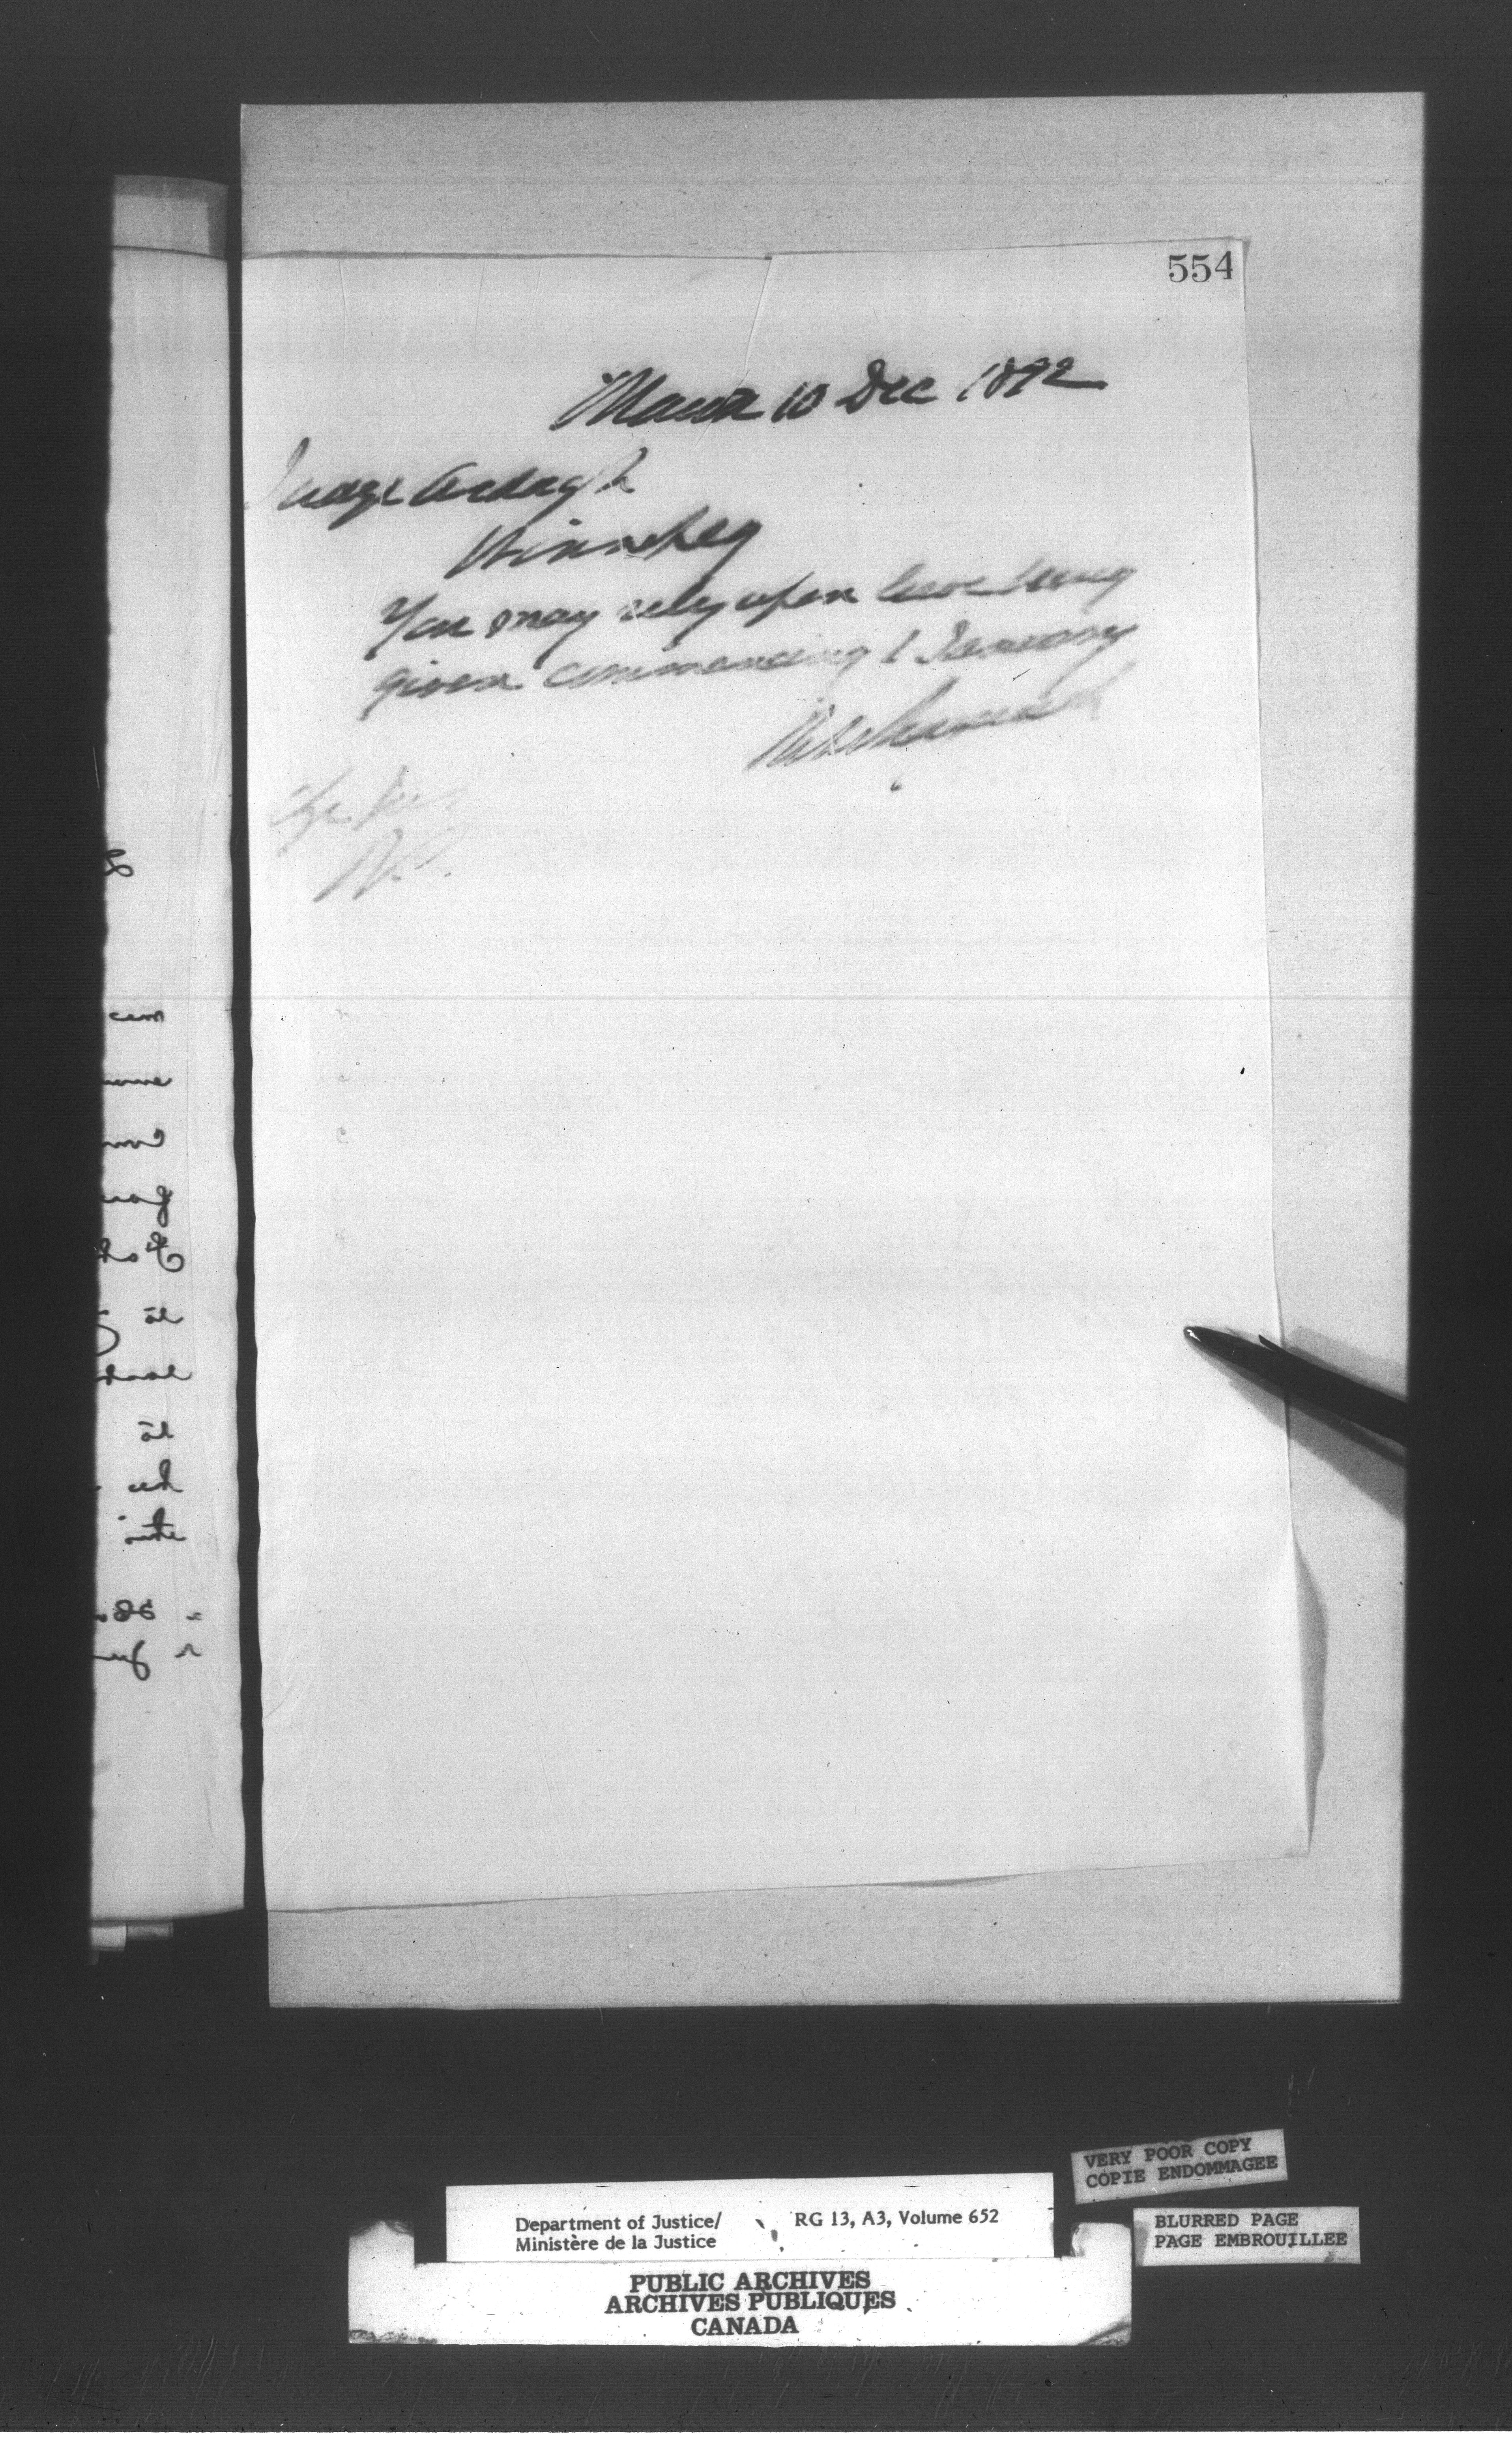 554
10 Dec 1892
Judge Ardagh
Winnipeg
You may rely upon leave being
given commencing 1 January
VERY POOR COPY
COPIE ENDOMMAGEE
Department of Justice/
Ministère de la Justice
RG 13, A3, Volume 652
BLURRED PAGE
PAGE EMBROUILLEE
PUBLIC ARCHIVES
ARCHIVES PUBLIQUES
CANADA